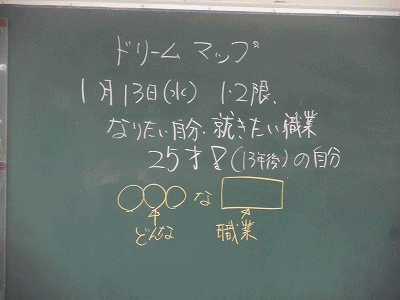 ドリームマップ
1月13日(水) 1・2限、
なりたい自分・就きたい職業
25才!(13年後)の自分
○○○な□
どんな 職業